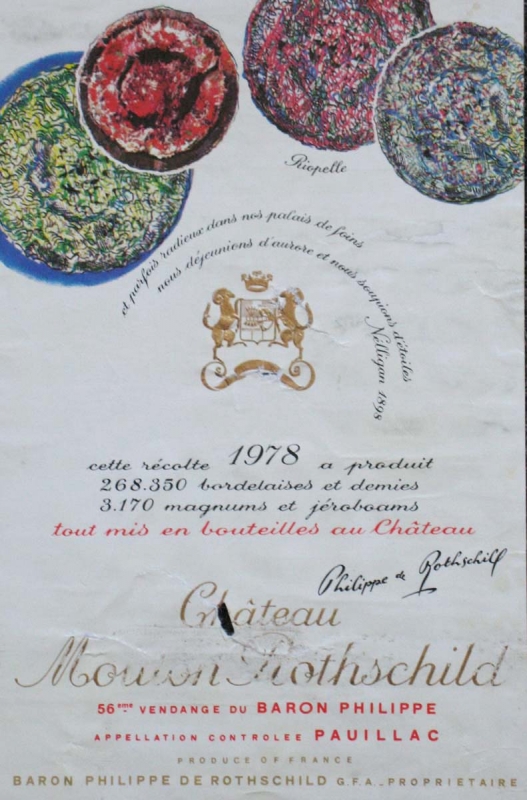 Riopelle
et parfois radieux dans nos palais de foins
nous déjeunions d'aurore et nous soupions d'étoiles
Nélligan 1898
cette récolte 1978 a produit
268.350 bordelaises et demies
3.170 magnums et jéroboams
tout mis en bouteilles au Château
Philippe de Rothschild
Château
Mouton Rothschild
56eme VENDANGE DU BARON PHILIPPE
APPELLATION CONTROLEE PAUILLAC
PRODUCE OF FRANCE
BARON PHILIPPE DE ROTHSCHILD G.F.A., PROPRIETAIRE